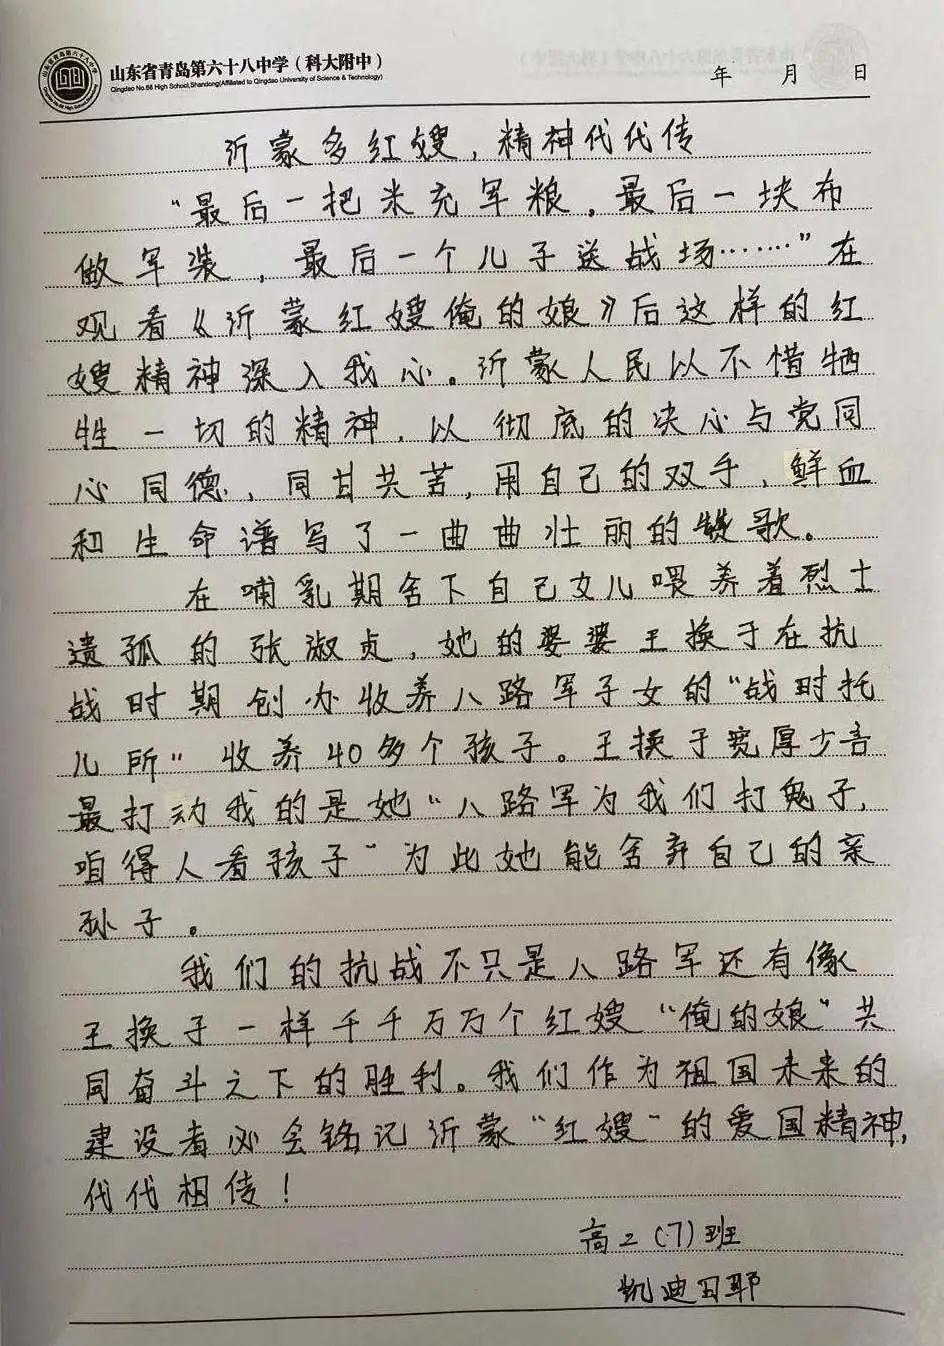 山东省青岛第六十八中学（科大附中）
Qingdao No.68 High School,Shandong(Affiliated to Qingdao University of Science & Technology)
年 月 日
沂蒙多红嫂，精神代代传
“最后一把米充军粮，最后一块布
做军装，最后一个儿子送战场……”在
观看《沂蒙红嫂俺的娘》后这样的红
嫂精神深入我心。沂蒙人民以不惜牺
牲一切的精神，以彻底的决心与党同
心同德，同甘共苦，用自己的双手，鲜血
和生命谱写了一曲曲壮丽的赞歌。
在哺乳期舍下自己女儿喂养着烈士
遗孤的张淑贞，她的婆婆王换于在抗
战时期创办收养八路军子女的“战时托
儿所”收养40多个孩子。王换于宽厚少言
最打动我的是她“八路军为我们打鬼子，
咱得人看孩子”为此她能舍弃自己的亲
孙子。
我们的抗战不只是八路军还有像
王换于一样千千万万个红嫂“俺的娘”共
同奋斗之下的胜利。我们作为祖国未来的
建设者必会铭记沂蒙“红嫂”的爱国精神，
代代相传！
高二（7）班
凯迪日耶